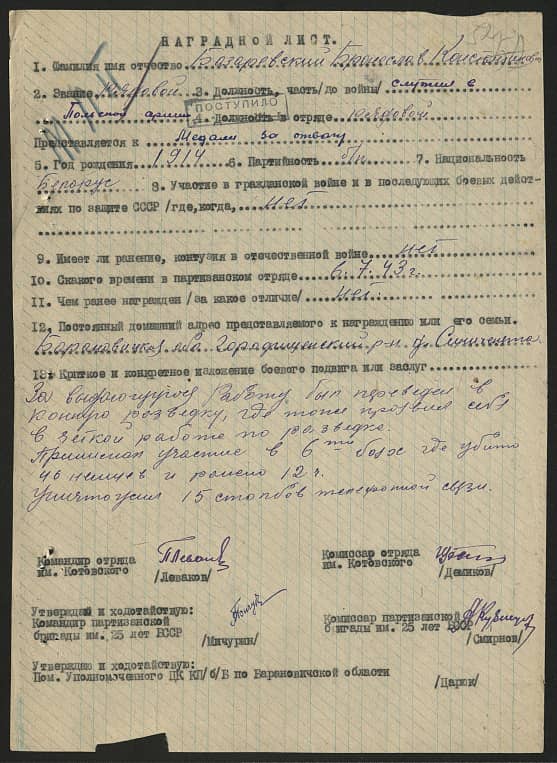 НАГРАДНОЙ ЛИСТ.
1. Фамилия имя отчество Базаревский Бронеслав Константинович
2. Звание Рядовой 3. Должность, часть/до войны/ служил в
Польской армии 4. Должность в отряде Рядовой
ПОСТУПИЛО
Представляется к Медали За отвагу
5. Год рождения 1914 6. Партийность б/п 7. Национальность
Белорус 8. Участие в гражданской войне и в последующих боевых дейст-
виях по защите СССР /где,когда, нет
9. Имеет ли ранение, контузия в отечественной войне нет
10. Скакого времени в партизанском отряде 6.7.43 г.
11. Чем ранее награжден /за какое отличие/ нет
12. Постоянный домашний адрес представляемого к награждению или его семьи.
Барановичская обл Городищенский р-н д.
13. Криткое и конкретное изложение боевого подвига или заслуг
За работу был переведен в
контро разведку, где тоже проявил себя
в чёткой работе по разведке.
Принимал участие в 6ти боях где убито
46 немцев и ранено 12 ч.
Уничтожил 15 столбов телефонной связи.
Командир отряда
им. Котовского
/Леваков/
Комиссар отряда
им. Котовского
/Демиков/
Утверждаю и ходотайствую:
Командир партизанской
бригады им. 25 лет БССР
/Мичурин/
Комиссар партизанской
бригады им. 25 лет БССР
/Смирнов/
Утверждаю и ходотайствую:
Пом. Уполномоченного ЦК КП/б/Б по Барановичской области
/Царюк/